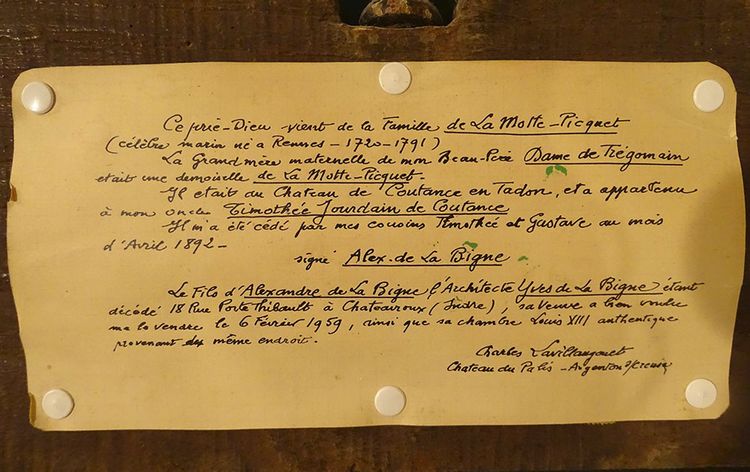 Ce prie-Dieu vient de la Famille de La Motte-Picquet
(célèbre marin né à Rennes - 1720-1791)
La Grand mère maternelle de mon Beau-Père Dame de Trégomain
etait une demoiselle de La Motte-Picquet.
Il etait du Chateau de Coutance en Tadon, et a appartenu
à mon oncle Timothée Jourdain de Coutance
Il m'a été cédé par mes cousins Timothée et Gustave au mois
d'Avril 1892-
signé Alex. de La Bigne
Le Fils d'Alexandre de La Bigne (l'Architecte Yves de La Bigne) étant
décédé 18 Rue Porte Thibault à Chateauroux (Indre), sa veuve a bien voulu
me le vendre le 6 Février 1959, ainsi que sa chambre Louis XIII authentique
provenant du même endroit.
Charles
Chateau du Palis - Argenton s/Creuse